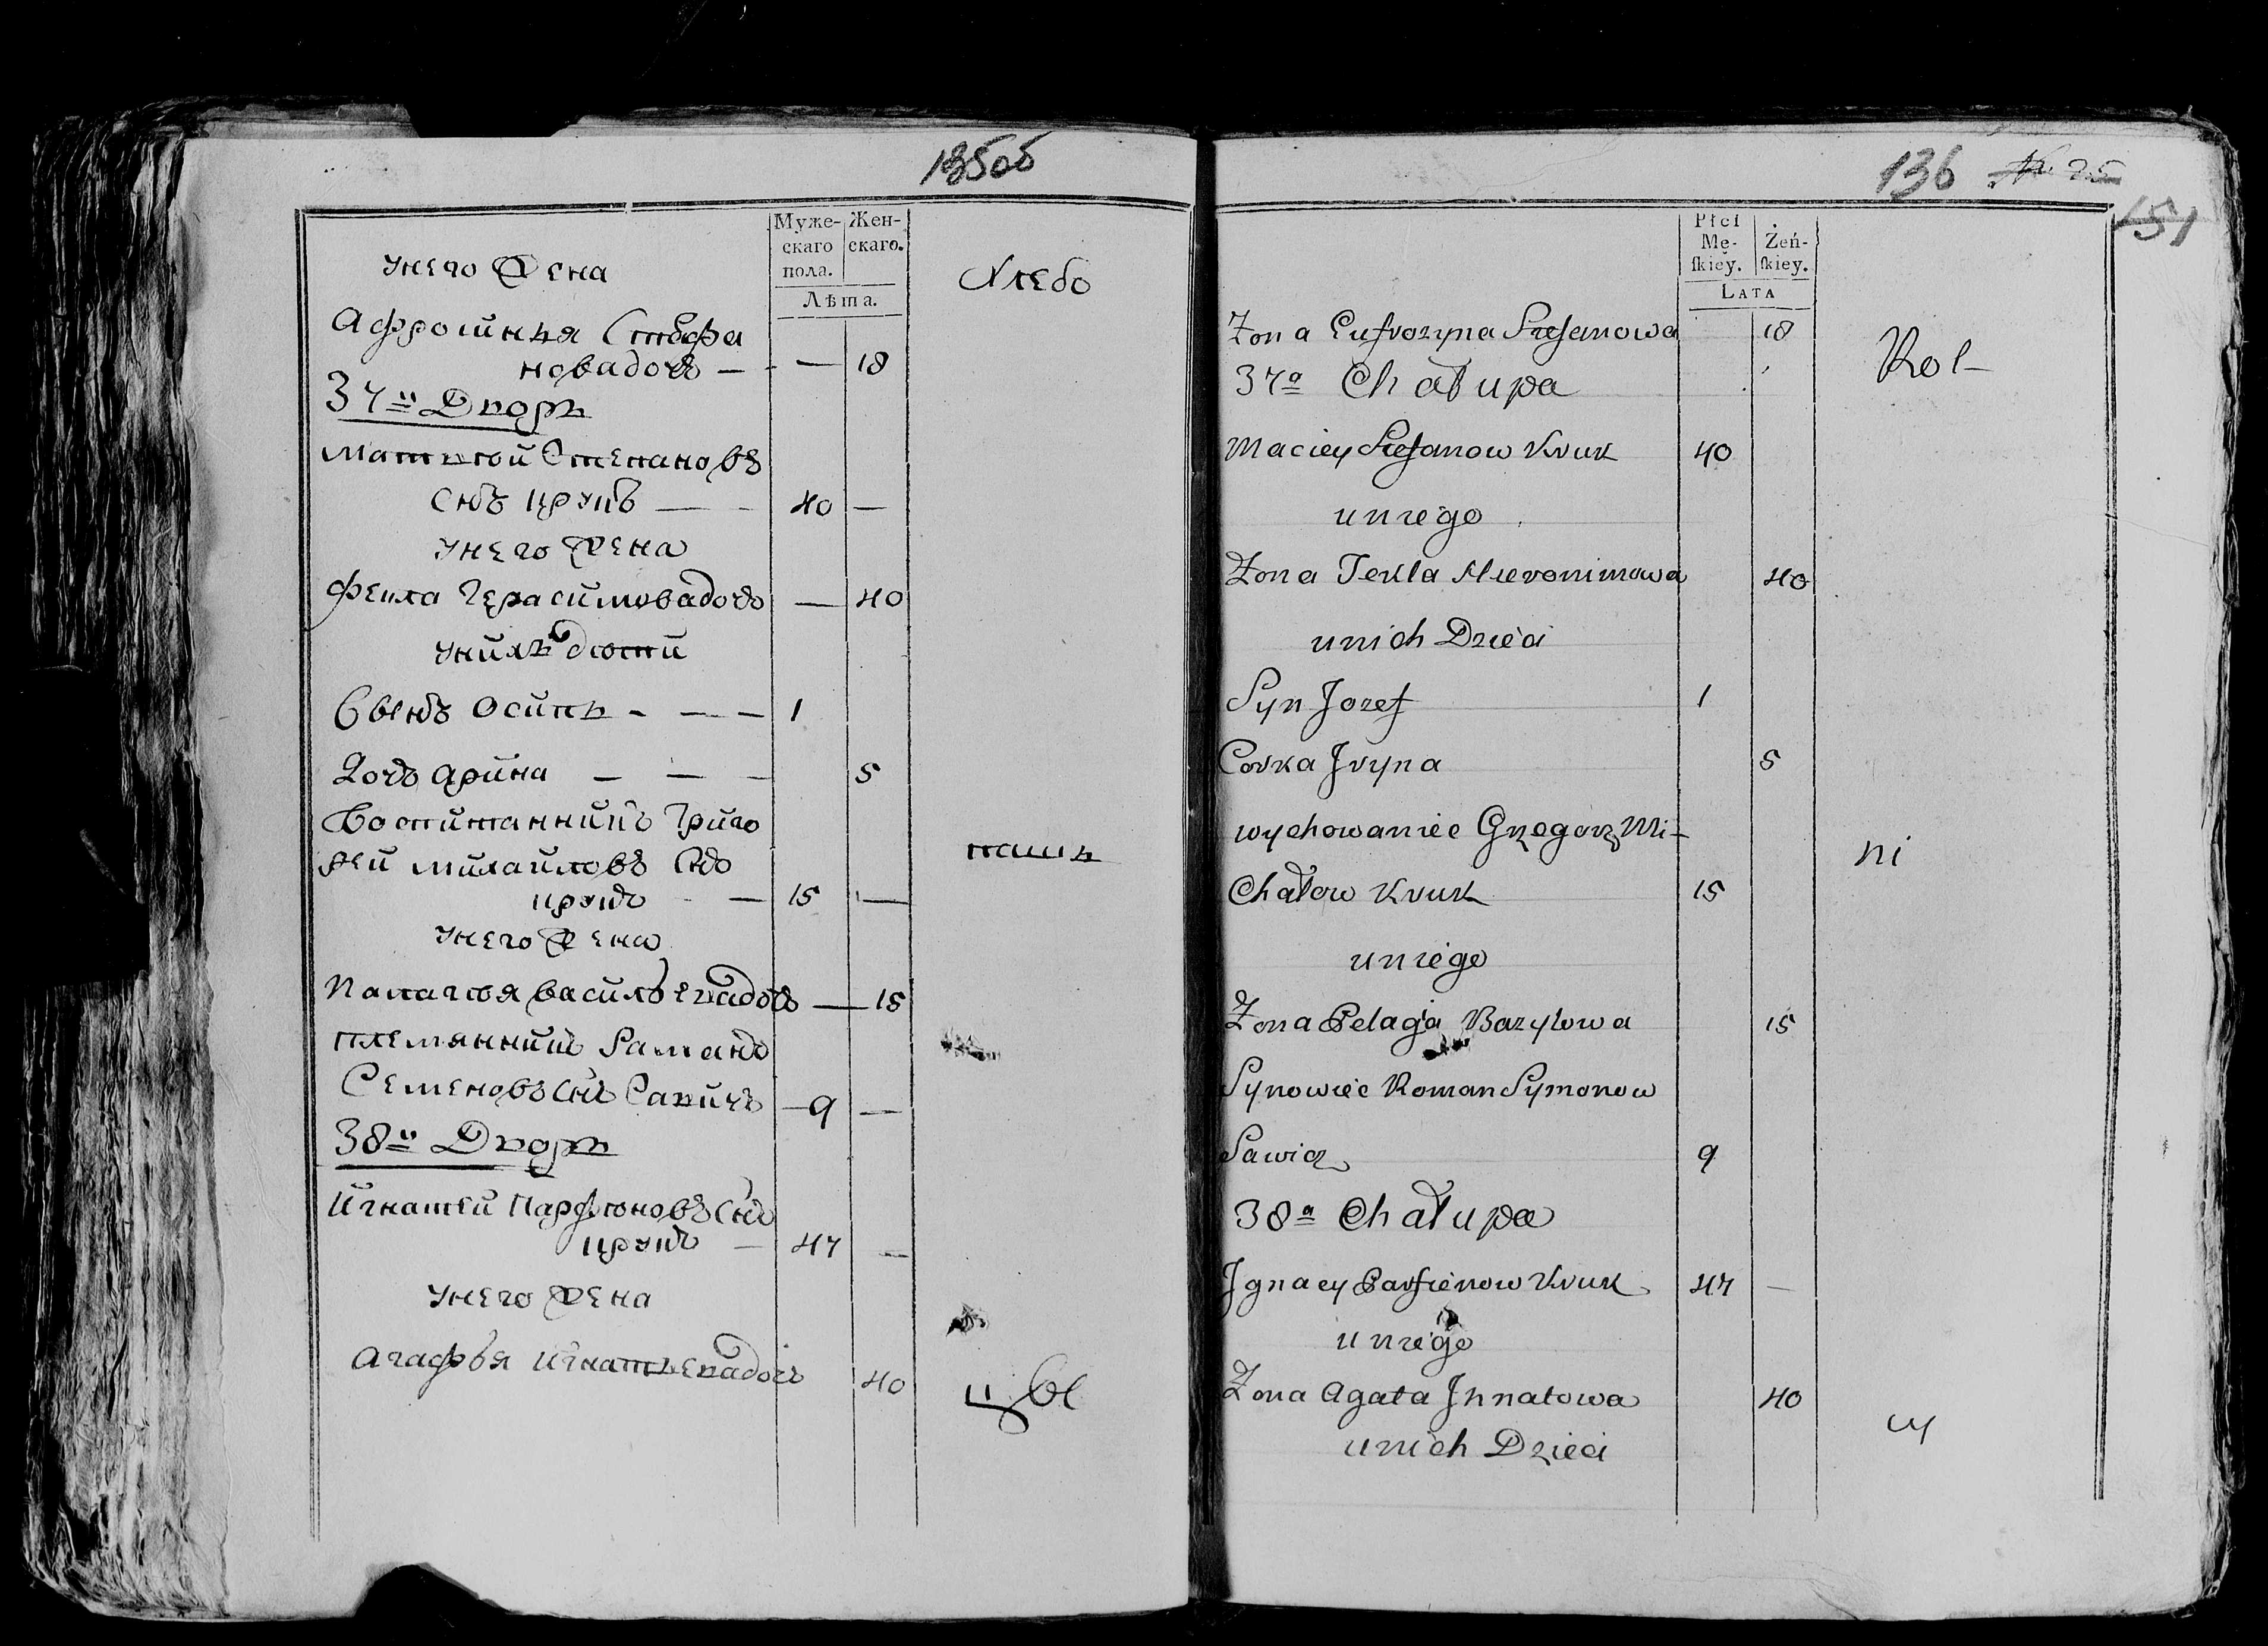 135об
Муже- Жен-
скаго скаго.
пола.
Лѣта.
унего Жена
Хлебо
Афросинья Стефа
новадочь — — 18
37й Дворъ
Матвей Степановъ
Снъ Крукъ — 40 —
унего Жена
Фекла Герасимовадочь — 40
унихъ дети
Сынъ Осипъ - — — 1
Дочь Арина — — — 5
Воспитанникъ Григо
рей Михайловъ Снъ
Крукъ — 15 —
паш
унего Жена
Палагея Васильевадочь — 15
племянникъ Раманъ
Семеновъ Снъ Савичь — 9 —
38й Дворъ
Игнатей Парфеновъ Снъ
Крукъ — 47 —
унего Жена
Агафья Игнатьевадочь 40
цы
136
151
Płci
Mę- Żeń-
ſkiey. ſkiey.
Lata
Zona Eufrozyna Stefanowa 18
Rol-
37a Chałupa
Maciey Stefanow Kruk 40
uniego
Zona Tekla Hieronimowa 40
unich Dzieci
Syn Jozef 1
Corka Jryna 5
wychowaniec Grzegorz Mi-
ni
Chałow Kruk 15
uniego
Zona Pelagia Bazylowa 15
Synowiec Roman Symonow
Sawicz 9
38a Chałupa
Jgnacy Parfienow Kruk 47 —
uniego
Zona Agata Jhnatowa 40
cy
unich Dzieci